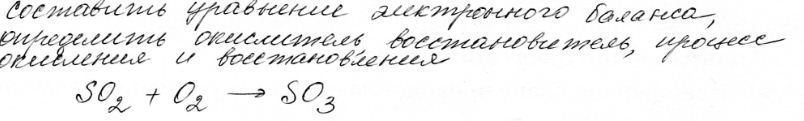 составить уравнение электронного баланса,
определить окислитель, восстановитель, процесс
окисления и восстановления
SO₂ + O₂ → SO₃